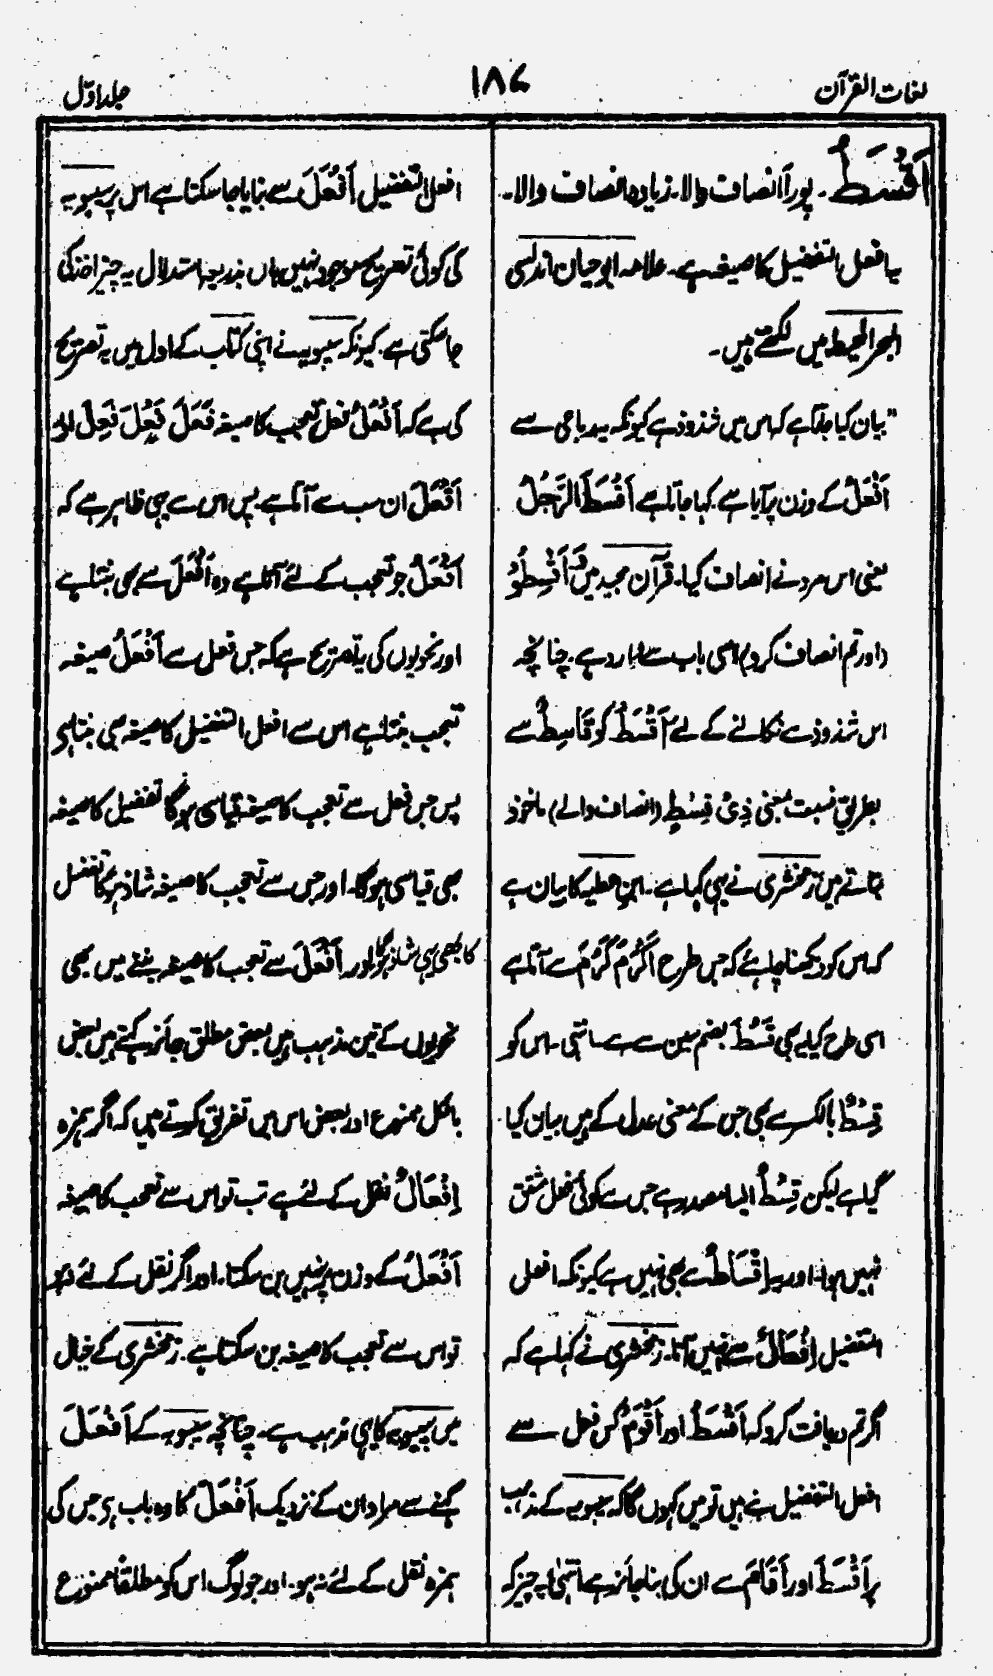 لغات القرآن
۱۸۶
جلد اوّل
اَقْسَطُ ۔ پورا انصاف والا۔ زیادہ انصاف والا۔
یہ افعل التفضیل کا صیغہ ہے۔ علامہ ابوحیان اندلسی
البحر المحیط میں لکھتے ہیں۔
"بیان کیا جاتا ہے کہ اس میں شذوذ ہے کیونکہ یہ رباعی سے
اَفْعَلُ کے وزن پر آیا ہے۔ کہا جاتا ہے اَقْسَطَ الرَّجُلُ
یعنی اس مرد نے انصاف کیا۔ قرآن مجید میں وَاَقْسِطُوْ
(اور تم انصاف کرو) اسی باب سے وارد ہے۔ چنانچہ
اس شذوذ سے نکالنے کے لئے اَقْسَطُ کو قَاسِطٌ سے
بطریق نسبت بمعنی ذِیْ قِسْطٍ (انصاف والے) ماخوذ
بتاتے ہیں زمخشری نے یہی کہا ہے۔ ابن عطیہ کا بیان ہے
کہ اس کو دیکھنا چاہئے کہ جس طرح اَکْرَمُ کَرُمَ سے آتا ہے
اسی طرح کیا یہ بھی قَسُطَ بضم سین سے ہے۔ انتہی۔ اس کو
قِسْطٌ بالکسر سے بھی جس کے معنی عدل کے ہیں بیان کیا
گیا ہے لیکن قِسْطٌ ایسا مصدر ہے جس سے کوئی فعل مشتق
نہیں ہوا۔ اور یہ اِقْسَاطٌ سے بھی نہیں ہے کیونکہ افعل
التفضیل اِفْعَالٌ سے نہیں آتا۔ زمخشری نے کہا ہے کہ
اگر تم دریافت کرو کہ اَقْسَطُ اور اَقْوَمُ کس فعل سے
افعل التفضیل بنے ہیں تو میں کہوں گا کہ سیبویہ کے مذہب
پر اَقْسَطَ اور اَقَامَ سے ان کی بنا جائز ہے انتہیٰ یہ چیز کہ
افعل التفضیل اَفْعَلَ سے بنایا جا سکتا ہے اس پر سیبویہ
کی کوئی تصریح موجود نہیں ہاں بذریعہ استدلال یہ چیز اخذ کی
جا سکتی ہے۔ کیونکہ سیبویہ نے اپنی کتاب کے اول میں یہ تصریح
کی ہے کہ اَفْعَلُ فعل تعجب کا صیغہ فَعَلَ فَعُلَ فَعِلَ اور
اَفْعَلَ ان سب سے آتا ہے۔ پس اس سے یہی ظاہر ہے کہ
اَفْعَلُ جو تعجب کے لئے آتا ہے وہ اَفْعَلَ سے بھی بنتا ہے
اور نحویوں کی یہ تصریح ہے کہ جس فعل سے اَفْعَلُ صیغہ
تعجب بنتا ہے اس سے افعل التفضیل کا صیغہ بھی بنتا ہے
پس جس فعل سے تعجب کا صیغہ قیاسی ہوگا تفضیل کا صیغہ
بھی قیاسی ہوگا۔ اور جس سے تعجب کا صیغہ شاذ ہوگا تفضیل
کا بھی ہی شاذ ہوگا اور اَفْعَلَ سے تعجب کا صیغہ بننے میں بھی
نحویوں کے تین مذہب ہیں بعض مطلق جائز کہتے ہیں بعض
بالکل ممنوع اور بعض اس میں تفریق کرتے ہیں کہ اگر ہمزہ
اِفْعَالٌ نقل کے لئے ہے تب تو اس سے تعجب کا صیغہ
اَفْعَلُ کے وزن پر نہیں بن سکتا۔ اور اگر نقل کے لئے نہ ہو
تو اس سے تعجب کا صیغہ بن سکتا ہے۔ زمخشری کے خیال
میں سیبویہ کا یہی مذہب ہے۔ چنانچہ سیبویہ کے اَفْعَلَ
کہنے سے مراد ان کے نزدیک اَفْعَلَ کا وہ باب ہے جس کی
ہمزہ نقل کے لئے نہ ہو۔ اور جو لوگ اس کو مطلقاً ممنوع